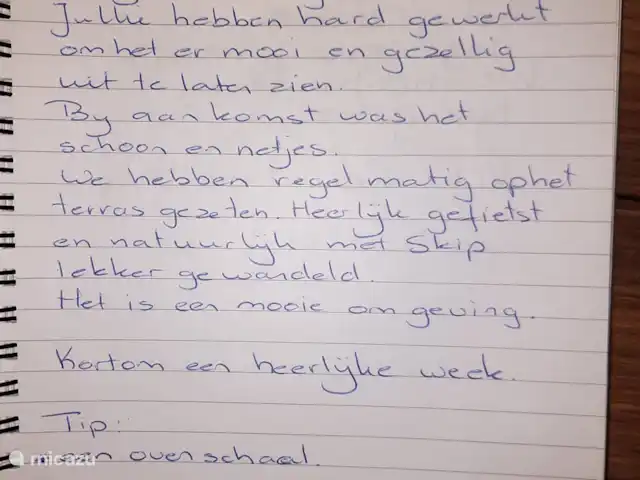 Jullie hebben hard gewerkt
om het er mooi en gezellig
uit te laten zien.
By aankomst was het
schoon en netjes.
We hebben regelmatig op het
terras gezeten. Heerlijk gefietst
en natuurlijk met Skip
lekker gewandeld.
Het is een mooie omgeving.
Kortom een heerlijke week.
Tip:
een ovenschaal.
micazu